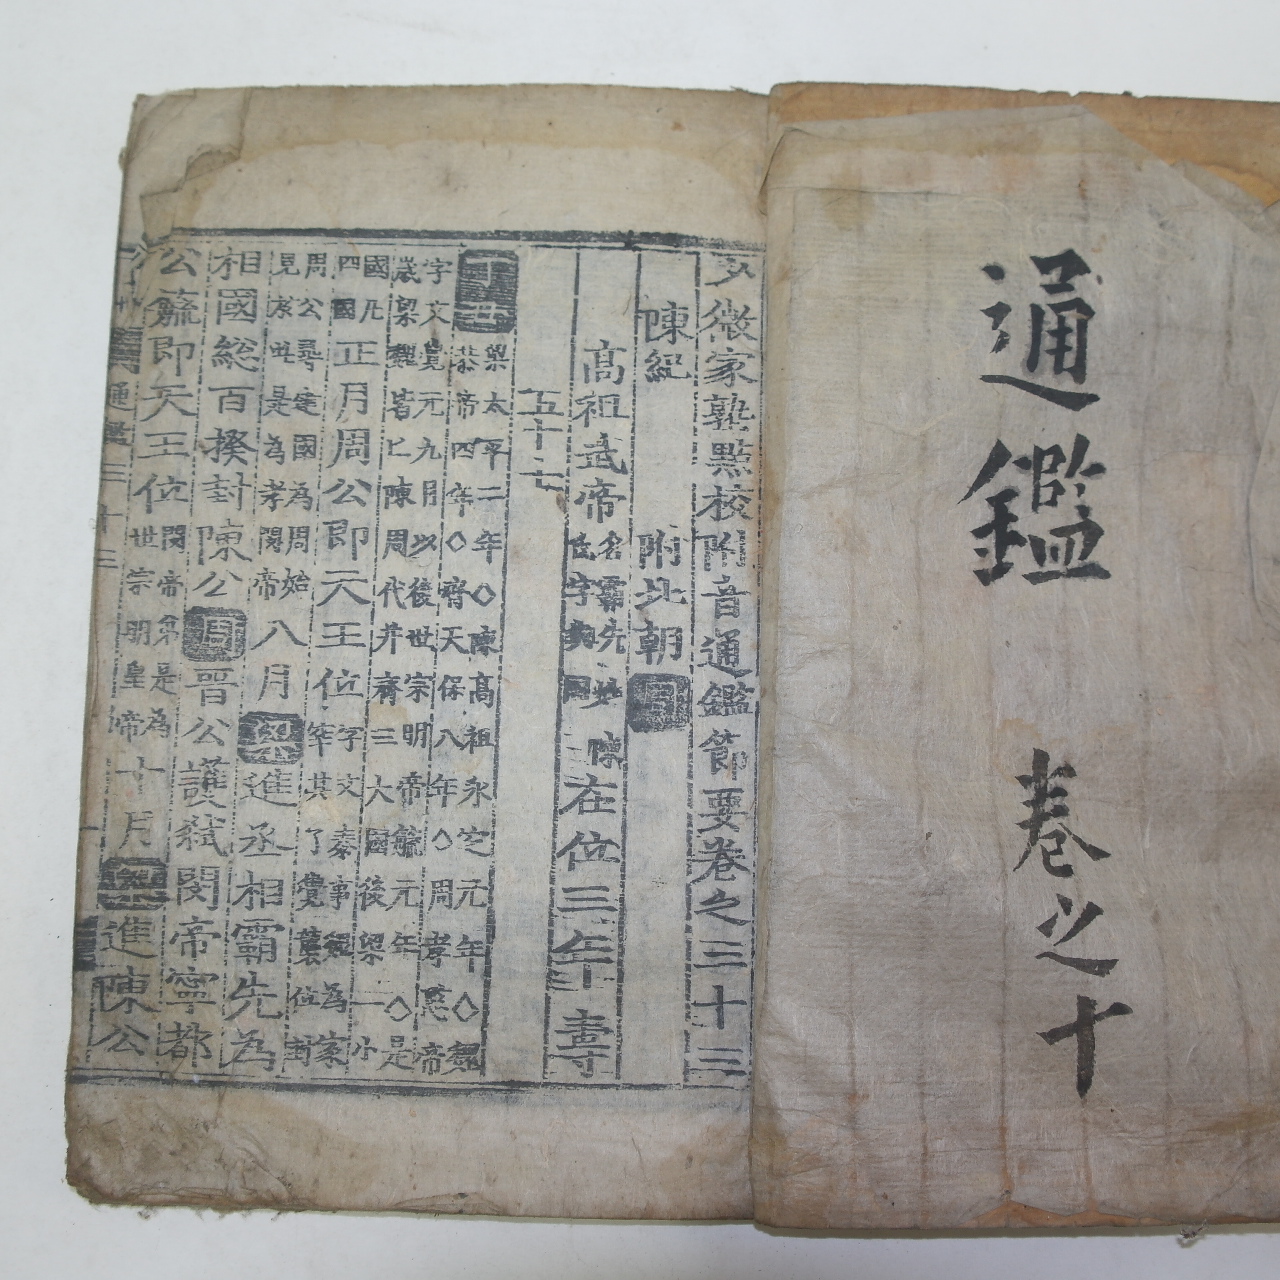 通鑑 卷之十
少微家塾點校附音通鑑節要卷之三十三
陳紀 附北朝 周
高祖武帝 名霸先姓陳 氏字興國 在位三年 壽
五十七
丁丑 梁太平二年○陳高祖永定元年○魏
恭帝四年○齊天保八年○周孝愍帝
字文覺元九月以後世宗明帝毓元年○是
歲梁魏皆亡陳周代并齊三大國後梁一小
國凡
四國
正月周公即天王位
宇文泰事魏為冢
宰其子覺襲位封
周公尋建國為周始
見求世是為孝閔帝
八月 梁 進丞相霸先為
相國総百揆封陳公 周 晉公護弑閔帝寧都
公毓即天王位
閔帝弟是為
世宗明皇帝
十月 梁 進陳公
通鑑三十三
一